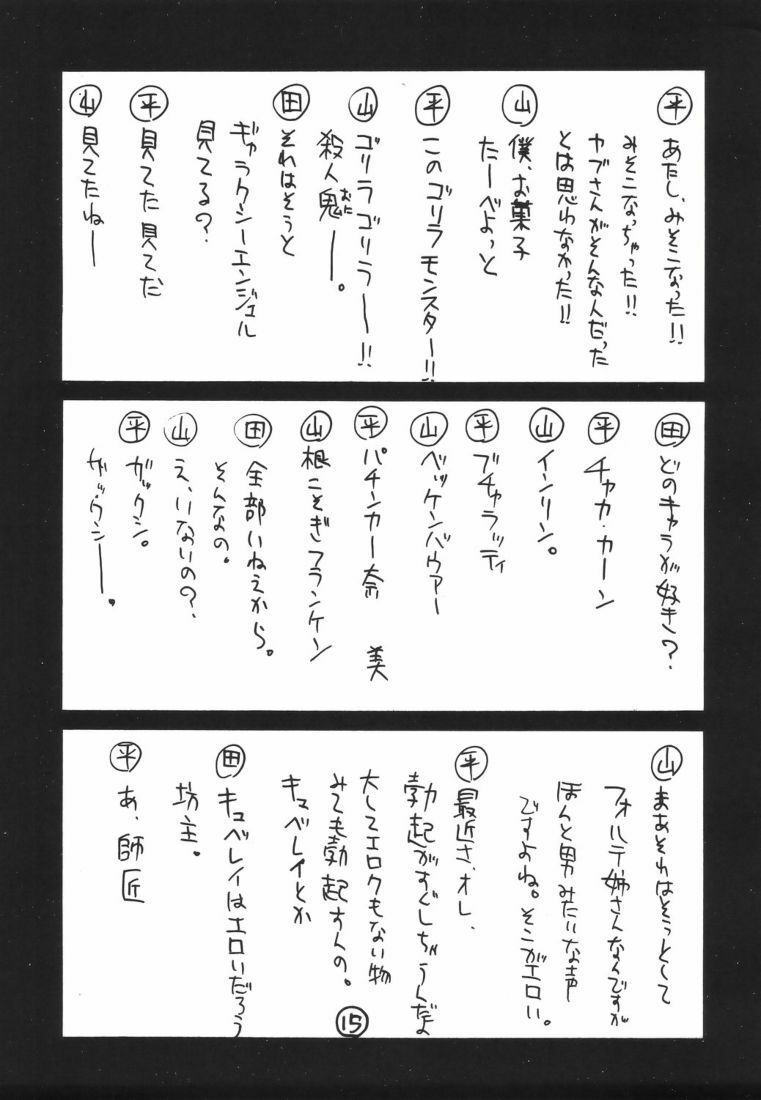 ㊥平 あたし、みそこなった!!
みそこなっちゃった!!
ヤブさんがそんな人だった
とは思わなかった!!
山 僕、お菓子
たーべよっと
平 このゴリラモンスター!!
山 ゴリラゴリラー!!
殺人鬼ー。
おに
田 それはそうと
ギャラクシーエンジェル
見てる?
平 見てた見てた
山 見てたねー
田 どのキャラが好き?
平 チャカ・カーン
山 インリン。
平 ブチャラッティ
山 ベッケンバウアー
平 パチンカー奈美
山 根こそぎフランケン
田 全部いねえから。
そんなの。
山 え、いないの?
平 ガックシ。
ガックシー。
山 まあそれはそうとして
フォルテ姉さんなんですが
ほんと男みたいな声
ですよね。そこがエロい。
平 最近さ、オレ、
勃起がすぐしちゃうんだよ
大してエロクもない物
みても勃起すんの。
キュベレイとか
田 キュベレイはエロいだろう
坊主。
平 あ、師匠
15